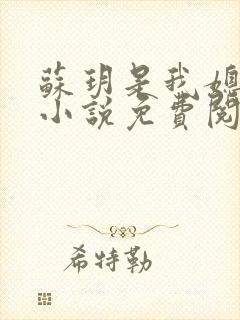 蘇玥是我媳
小說免費閱
希特勒